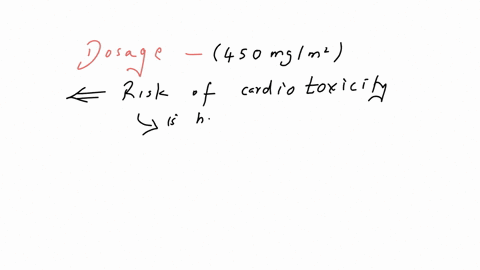 Dosage — (450 mg/m²)
⇐ Risk of cardiotoxicity
↳ is h.